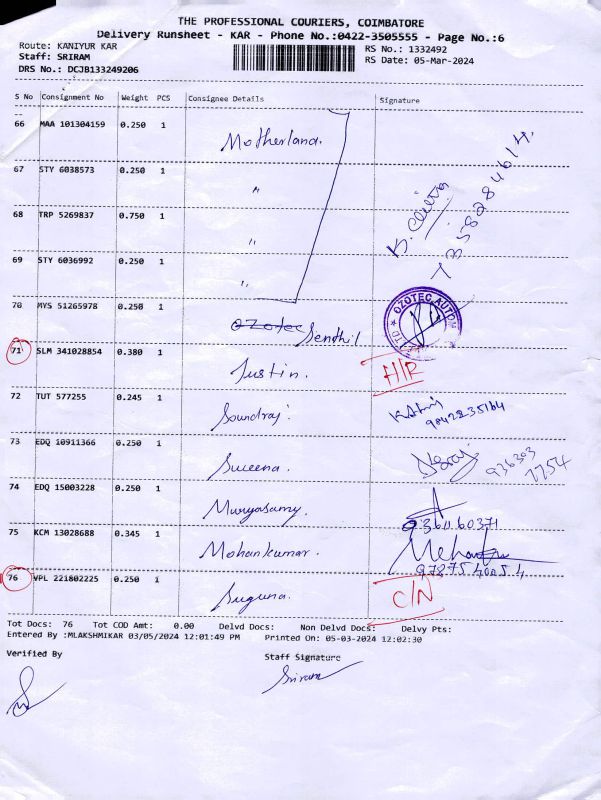 THE PROFESSIONAL COURIERS, COIMBATORE
Delivery Runsheet - KAR - Phone No.:0422-3505555 - Page No.:6
Route: KANIYUR KAR RS No.: 1332492
Staff: SRIRAM RS Date: 05-Mar-2024
DRS No.: DCJB133249206
S No Consignment No Weight PCS Consignee Details Signature
66 MAA 101304159 0.250 1 Motherland.
67 STY 6038573 0.250 1 "
68 TRP 5269837 0.750 1 "
69 STY 6036992 0.250 1 "
K. Chitra
7358284614.
70 MYS 51265978 0.250 1 Ozotec Senthil OZOTEC AUTOM LTD
71 SLM 341028854 0.380 1 Justin. H/P
72 TUT 577255 0.245 1 Soundraj 9042235164
73 EDQ 10911366 0.250 1 Suceena. 936303
7754
74 EDQ 15003228 0.250 1 Muryasamy. 9361160371
75 KCM 13028688 0.345 1 Mohankumar.
76 VPL 221802225 0.250 1 Suguna. C/N
Tot Docs: 76 Tot COD Amt: 0.00 Delvd Docs: Non Delvd Docs: Delvy Pts:
Entered By :MLAKSHMIKAR 03/05/2024 12:01:49 PM Printed On: 05-03-2024 12:02:30
Verified By Staff Signature
Sriram